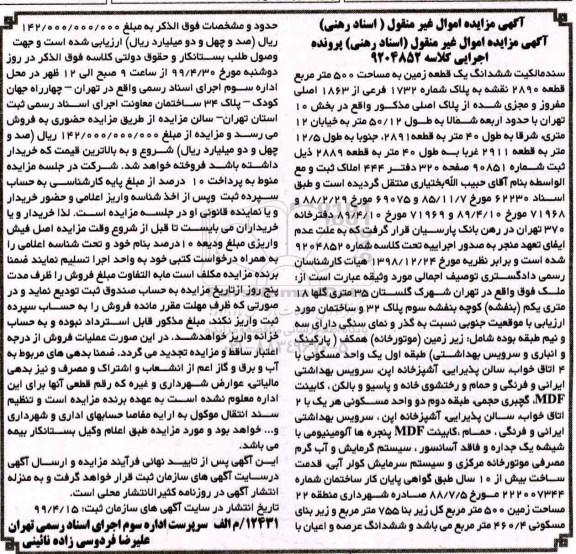 آگهی مزایده اموال غیر منقول ( اسناد رهنی)
آگهی مزایده اموال غیر منقول (اسناد رهنی) پرونده
اجرایی کلاسه ۹۲۰۴۸۵۲
سندمالکیت ششدانگ یک قطعه زمین به مساحت ۵۰۰ متر مربع
قطعه ۲۸۹۰ نقشه به پلاک شماره ۱۷۳۲ فرعی از ۱۸۶۳ اصلی
مفروز و مجزی شده از پلاک اصلی مذکور واقع در بخش ۱۰
تهران با حدود اربعه شمالا به طول ۵۰/۱۲ متر به خیابان ۱۲
متری، شرقا به طول ۴۰ متر به قطعه۲۸۹۱، جنوبا به طول ۱۲/۵
متر به قطعه ۲۹۱۱ غربا به طول ۴۰ متر به قطعه ۲۸۸۹ ذیل
ثبت شماره ۹۰۸۵۱ صفحه ۳۲۰ دفتر ۴۴۴ املاک ثبت و مع
الواسطه بنام آقای حبیب الله بختیاری منتقل گردیده است و طبق
اسناد ۶۲۲۳۰ مورخ ۸۵/۱۱/۷ و ۶۹۰۷۵ مورخ ۸۸/۲/۹ و
۷۱۹۶۸ مورخ ۸۹/۴/۱۰ و ۷۱۹۶۹ مورخ دفترخانه
۳۷۰ تهران در رهن بانک پارسیان قرار گرفت که به علت عدم
ایفای تعهد منجر به صدور اجراییه تحت کلاسه شماره ۹۲۰۴۸۵۲
شده است و برابر نظریه مورخ ۱۳۹۸/۱۲/۲۴ هیات کارشناسان
رسمی دادگستری توصیف اجمالی مورد وثیقه عبارت است از:
ملک فوق واقع در تهران شهرک گلستان ۳۵ متری گلها ۱۸
متری یکم (بنفشه) کوچه بنفشه سوم پلاک ۳۲ و ساختمان مورد
ارزیابی با موقعیت جنوبی نسبت به گذر و نمای سنگی دارای سه
و نیم طبقه بوده شامل: زیر زمین (موتورخانه) همکف ( پارکینگ
و انباری و سرویس بهداشتی) طبقه اول یک واحد مسکونی با
۴ اتاق خواب، سالن پذیرایی، آشپزخانه اپن، سرویس بهداشتی
ایرانی و فرنگی و حمام و رختشوی خانه و پاسیو و بالکن ، کابینت
MDF، گچبری حجمی، طبقه دوم دو واحد مسکونی هر یک با ۲
اتاق خواب، سالن پذیرایی، آشپزخانه اپن ، سرویس بهداشتی
ایرانی و فرنگی ، حمام ،کابینت MDF پنجره ها آلومینیومی با
شیشه یک جداره و فاقد آسانسور ، سیستم گرمایش و آب گرم
مصرفی موتورخانه مرکزی و سیستم سرمایش کولر آبی، قدمت
ساخت بیش از ۱۰ سال طبق گواهی پایان کار ساختمان شماره
۲۲۲۰۰۷۳۴۴ مورخ ۸۸/۷/۵ صادره شهرداری منطقه ۲۲
مساحت زمین ۵۰۰ متر مربع کل زیر بنا ۷۵۵ متر مربع و زیر بنای
مسکونی ۴۶۰/۴ متر مربع می باشد و ششدانگ عرصه و اعیان با
حدود و مشخصات فوق الذکر به مبلغ ۱۴۲/۰۰۰/۰۰۰/۰۰۰
ریال (صد و چهل و دو میلیارد ریال) ارزیابی شده است و جهت
وصول طلب بستانکار و حقوق دولتی کلاسه فوق الذکر در روز
دوشنبه مورخ ۹۹/۴/۳۰ از ساعت ۹ صبح الی ۱۲ ظهر در محل
اداره سوم اجرای اسناد رسمی واقع در تهران – چهارراه جهان
کودک – پلاک ۳۴ ساختمان معاونت اجرای اسناد رسمی ثبت
استان تهران– سالن مزایده از طریق مزایده حضوری به فروش
می رسد و مزایده از مبلغ ۱۴۲/۰۰۰/۰۰۰/۰۰۰ ریال (صد و
چهل و دو میلیارد ریال) شروع و به بالاترین قیمت که خریدار
داشته باشد فروخته خواهد شد. شرکت در جلسه مزایده
منوط به پرداخت ۱۰ درصد از مبلغ پایه کارشناسی به حساب
سپرده ثبت وپس از اخذ شناسه واریز اعلامی و حضور خریدار
و یا نماینده قانونی او در جلسه مزایده است. لذا خریدار و یا
خریداران می بایست تا قبل از شروع وقت مزایده اصل فیش
واریزی مبلغ ودیعه ۱۰درصد بنام خود و تحت شناسه اعلامی را
به همراه درخواست کتبی خود به واحد اجرا تسلیم نمایند ضمنا
برنده مزایده مکلف است مابه التفاوت مبلغ فروش را ظرف مدت
پنج روز ازتاریخ مزایده به حساب صندوق ثبت تودیع نماید و در
صورتی که ظرف مهلت مقرر مانده فروش را به حساب سپرده
ثبت واریز نکند، مبلغ مذکور قابل استرداد نبوده و به حساب
خزانه واریز خواهدشد. در این صورت عملیات فروش از درجه
اعتبار ساقط و مزایده تجدید می گردد. ضمنا بدهی های مربوط به
آب و برق و گاز اعم از انشعاب و اشتراک و مصرف و نیز بدهی
مالیاتی، عوارض شهرداری و غیره که رقم قطعی آنها برای این
اداره معلوم نشده است به عهده برنده مزایده است و تنظیم
سند انتقال موکول به ارایه مفاصا حسابهای اداری و شهرداری
و... خواهد بود و مورد مزایده طبق اعلام وکیل بستانکار بیمه
می باشد.
این آگهی پس از تایید نهائی فرآیند مزایده و ارسال آگهی
درسایت آگهی های سازمان ثبت قرار خواهد گرفت و به منزله
انتشار آگهی در روزنامه کثیرالانتشار محلی است.
تاریخ انتشار در سایت آگهی های سازمان ثبت: ۹۹/۴/۱۵
۱۲۴۳۱/م الف سرپرست اداره سوم اجرای اسناد رسمی تهران
علیرضا فردوسی زاده نائینی